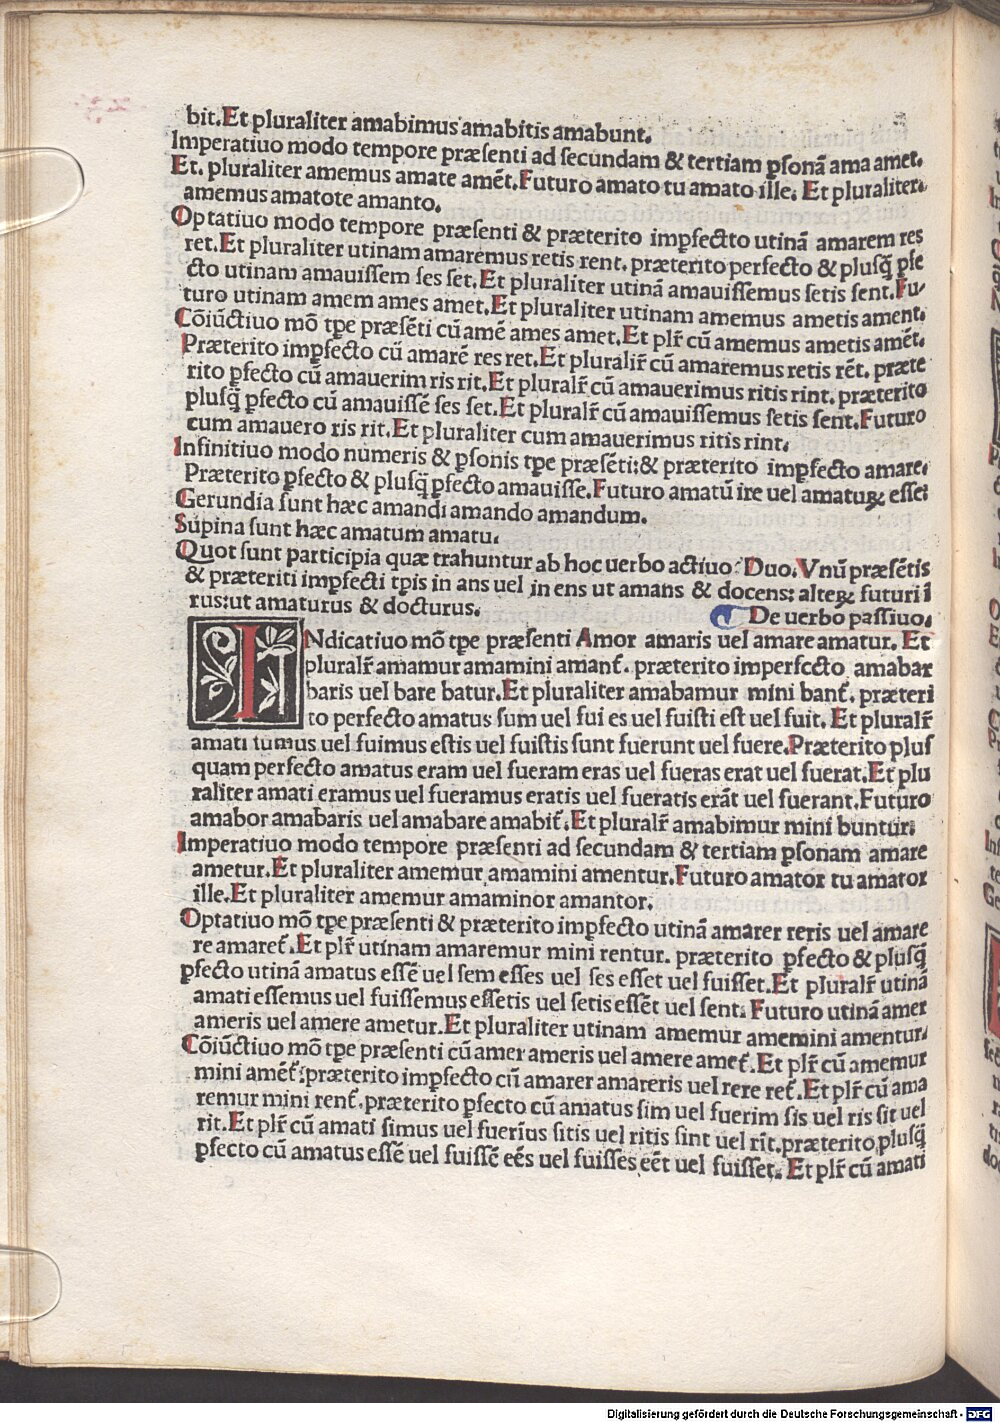 bit.Et pluraliter amabimus amabitis amabunt.
Imperatiuo modo tempore præsenti ad secundam & tertiam ꝑsonā ama amet.
Et. pluraliter amemus amate amēt.Futuro amato tu amato ille. Et pluraliter.
amemus amatote amanto.
Optatiuo modo tempore præsenti & præterito impſectto utinā amarem res
ret.Et pluraliter utinam amaremus retis rent. præterito perfecto & plusq̄ pfe
cto utinam amauissem ses set.Et pluraliter utinā amauissemus setis sent.Fu-
turo utinam amem ames amet.Et pluraliter utinam amemus ametis ament.
Cōiūctiuo mō tꝑe præsēti cū amē ames amet.Et plr̄ cū amemus ametis amēt.
Præterito imꝑfecto cū amarē res ret.Et pluralir̄ cū amaremus retis rēt. præte
rito ꝑfecto cū amauerim ris rit.Et pluralr̄ cū amauerimus ritis rint. præterito
plusq̄ ꝑfecto cū amauissē ses set.Et pluralr̄ cū amauissemus setis sent.Futuro
cum amauero ris rit.Et pluraliter cum amauerimus ritis rint.
Infinitiuo modo numeris & ꝑsonis tꝑe præsēti:& præterito imꝑfecto amare.
Præterito ꝑfecto & plusq̄ ꝑfecto amauisse.Futuro amatū ire uel amatuꝝ esse:
Gerundia sunt hæc amandi amando amandum.
Supina sunt hæc amatum amatu.
Quot sunt participia quæ trahuntur ab hoc uerbo actiuo: Duo.Vnū præsētis
& præteriti imꝑfecti tꝑis in ans uel in ens ut amans & docens: alteꝝ futuri ī
rus:ut amaturus & docturus.
De uerbo passiuo.
INdicatiuo mō tꝑe præsenti Amor amaris uel amare amatur. Et
pluralr̄ amamur amamini amant̄. præterito imperfecto amabar
baris uel bare batur.Et pluraliter amabamur mini bant̄. præteri
to perfecto amatus sum uel fui es uel fuisti est uel fuit. Et pluralr̄
amati sumus uel fuimus estis uel fuistis sunt fuerunt uel fuere.Præterito plus
quam perfecto amatus eram uel fueram eras uel fueras erat uel fuerat.Et plu
raliter amati eramus uel fueramus eratis uel fueratis erāt uel fuerant.Futuro
amabor amabaris uel amabare amabit̄.Et pluralr̄ amabimur mini buntur.
Imperatiuo modo tempore præsenti ad secundam & tertiam ꝑsonam amare
ametur.Et pluraliter amemur amamini amentur.Futuro amator tu amator
ille.Et pluraliter amemur amaminor amantor.
Optatiuo mō tꝑe præsenti & præterito imꝑfecto utinā amarer reris uel amare
re amaret̄.Et plr̄ utinam amaremur mini rentur. præterito ꝑfecto & plusq̄
ꝑfecto utinā amatus essē uel sem esses uel ses esset uel fuisset.Et pluralr̄ utinā
amati essemus uel fuissemus essetis uel setis essēt uel sent. Futuro utinā amer
ameris uel amere ametur.Et pluraliter utinam amemur amemini amentur.
Cōiūctiuo mō tꝑe præsenti cū amer ameris uel amere amet̄.Et plr̄ cū amemur
mini amēt̄:præterito imꝑfecto cū amarer amareris uel rere ret̄.Et plr̄ cū ama
remur mini rent̄.præterito ꝑfecto cū amatus sim uel fuerim sis uel ris sit uel
rit.Et plr̄ cū amati simus uel fuerīus sitis uel ritis sint uel rīt.præterito plusq̄
ꝑfecto cū amatus essē uel fuissē eēs uel fuisses eēt uel fuisset. Et plr̄ cū amati
Digitalisierung gefördert durch die Deutsche Forschungsgemeinschaft - DFG